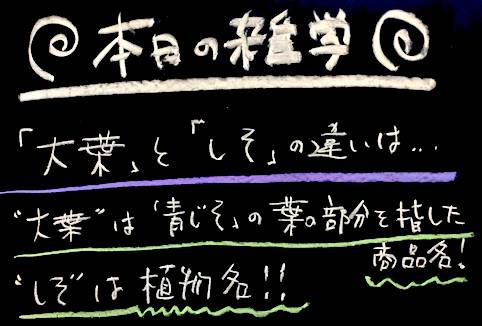 本日の雑学
「大葉」と「しそ」の違いは…
"大葉"は「青じそ」の葉の部分を指した
商品名!
"しそ"は植物名!!